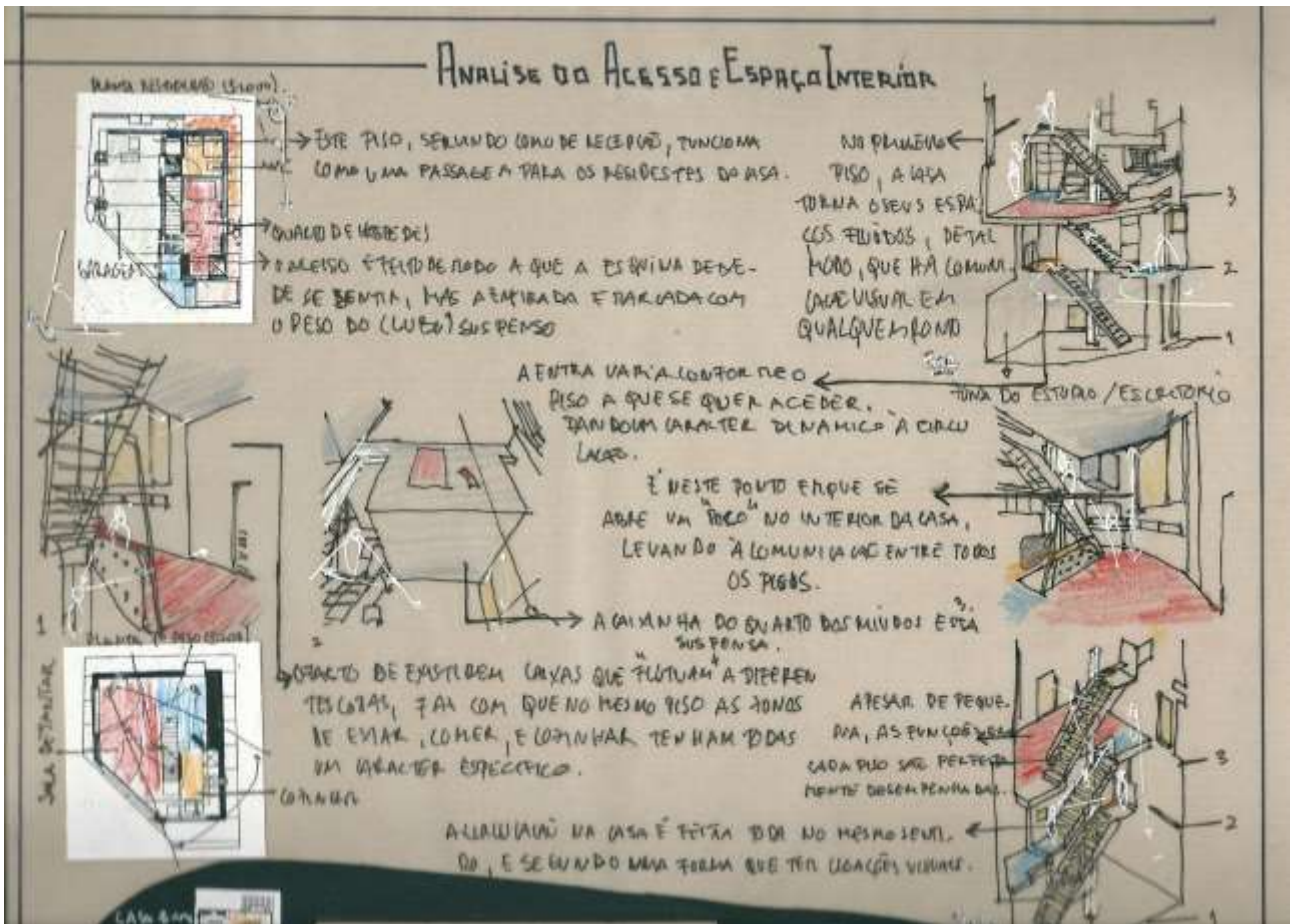 ANALISE DO ACESSO E ESPAÇO INTERIOR
ESTE PISO, SERVINDO COMO DE RECEPÇÃO, FUNCIONA
COMO UMA PASSAGEM PARA OS RESIDESTES DA CASA.
QUARTO DE HOSPEDES
GARAGEM
O ACESSO É FEITO DE MODO A QUE A ESQUINA
DE SE SENTIA, MAS MARCADA COM
O PESO DO (CUBO) SUSPENSO
NO PRIMEIRO
PISO, A CASA
TORNA OS SEUS ESPA
ÇOS FLUÍDOS, DE TAL
MODO, QUE HÁ COMUNI
VISUAL EM
QUALQUER PONTO
3
2
1
ZONA DO ESTUDIO / ESCRITORIO
A ENTRA VARIA CONFORME O
PISO A QUE SE QUER ACEDER.
DANDO UM CARACTER DINAMICO À CIRCU
LAÇÃO.
É NESTE PONTO EM QUE SE
ABRE UM "FOCO" NO INTERIOR DA CASA,
LEVANDO À COMUNICAÇÃO ENTRE TODOS
OS PISOS.
A CAIXINHA DO QUARTO DOS MIUDOS ESTÁ
SUSPENSA.
1
2
3.
SALA DE JANTAR
O FACTO DE EXISTIREM CAIXAS QUE "FLUTUAM" A DIFEREN
TES COTAS, FAZ COM QUE NO MESMO PISO AS ZONAS
DE ESTAR, COMER, E COZINHAR TENHAM TODAS
UM CARACTER ESPECIFICO.
COZINHA
APESAR DE PEQUE
NA, AS FUNÇÕES
CADA PISO SÃO PERFEITA
MENTE DESEMPENHADAS.
3
2
A CIRCULAÇÃO NA CASA É FEITA TODA NO MESMO SENTI
DO, E SEGUNDO UMA FORMA QUE TEM LIGAÇÕES VISUAIS.